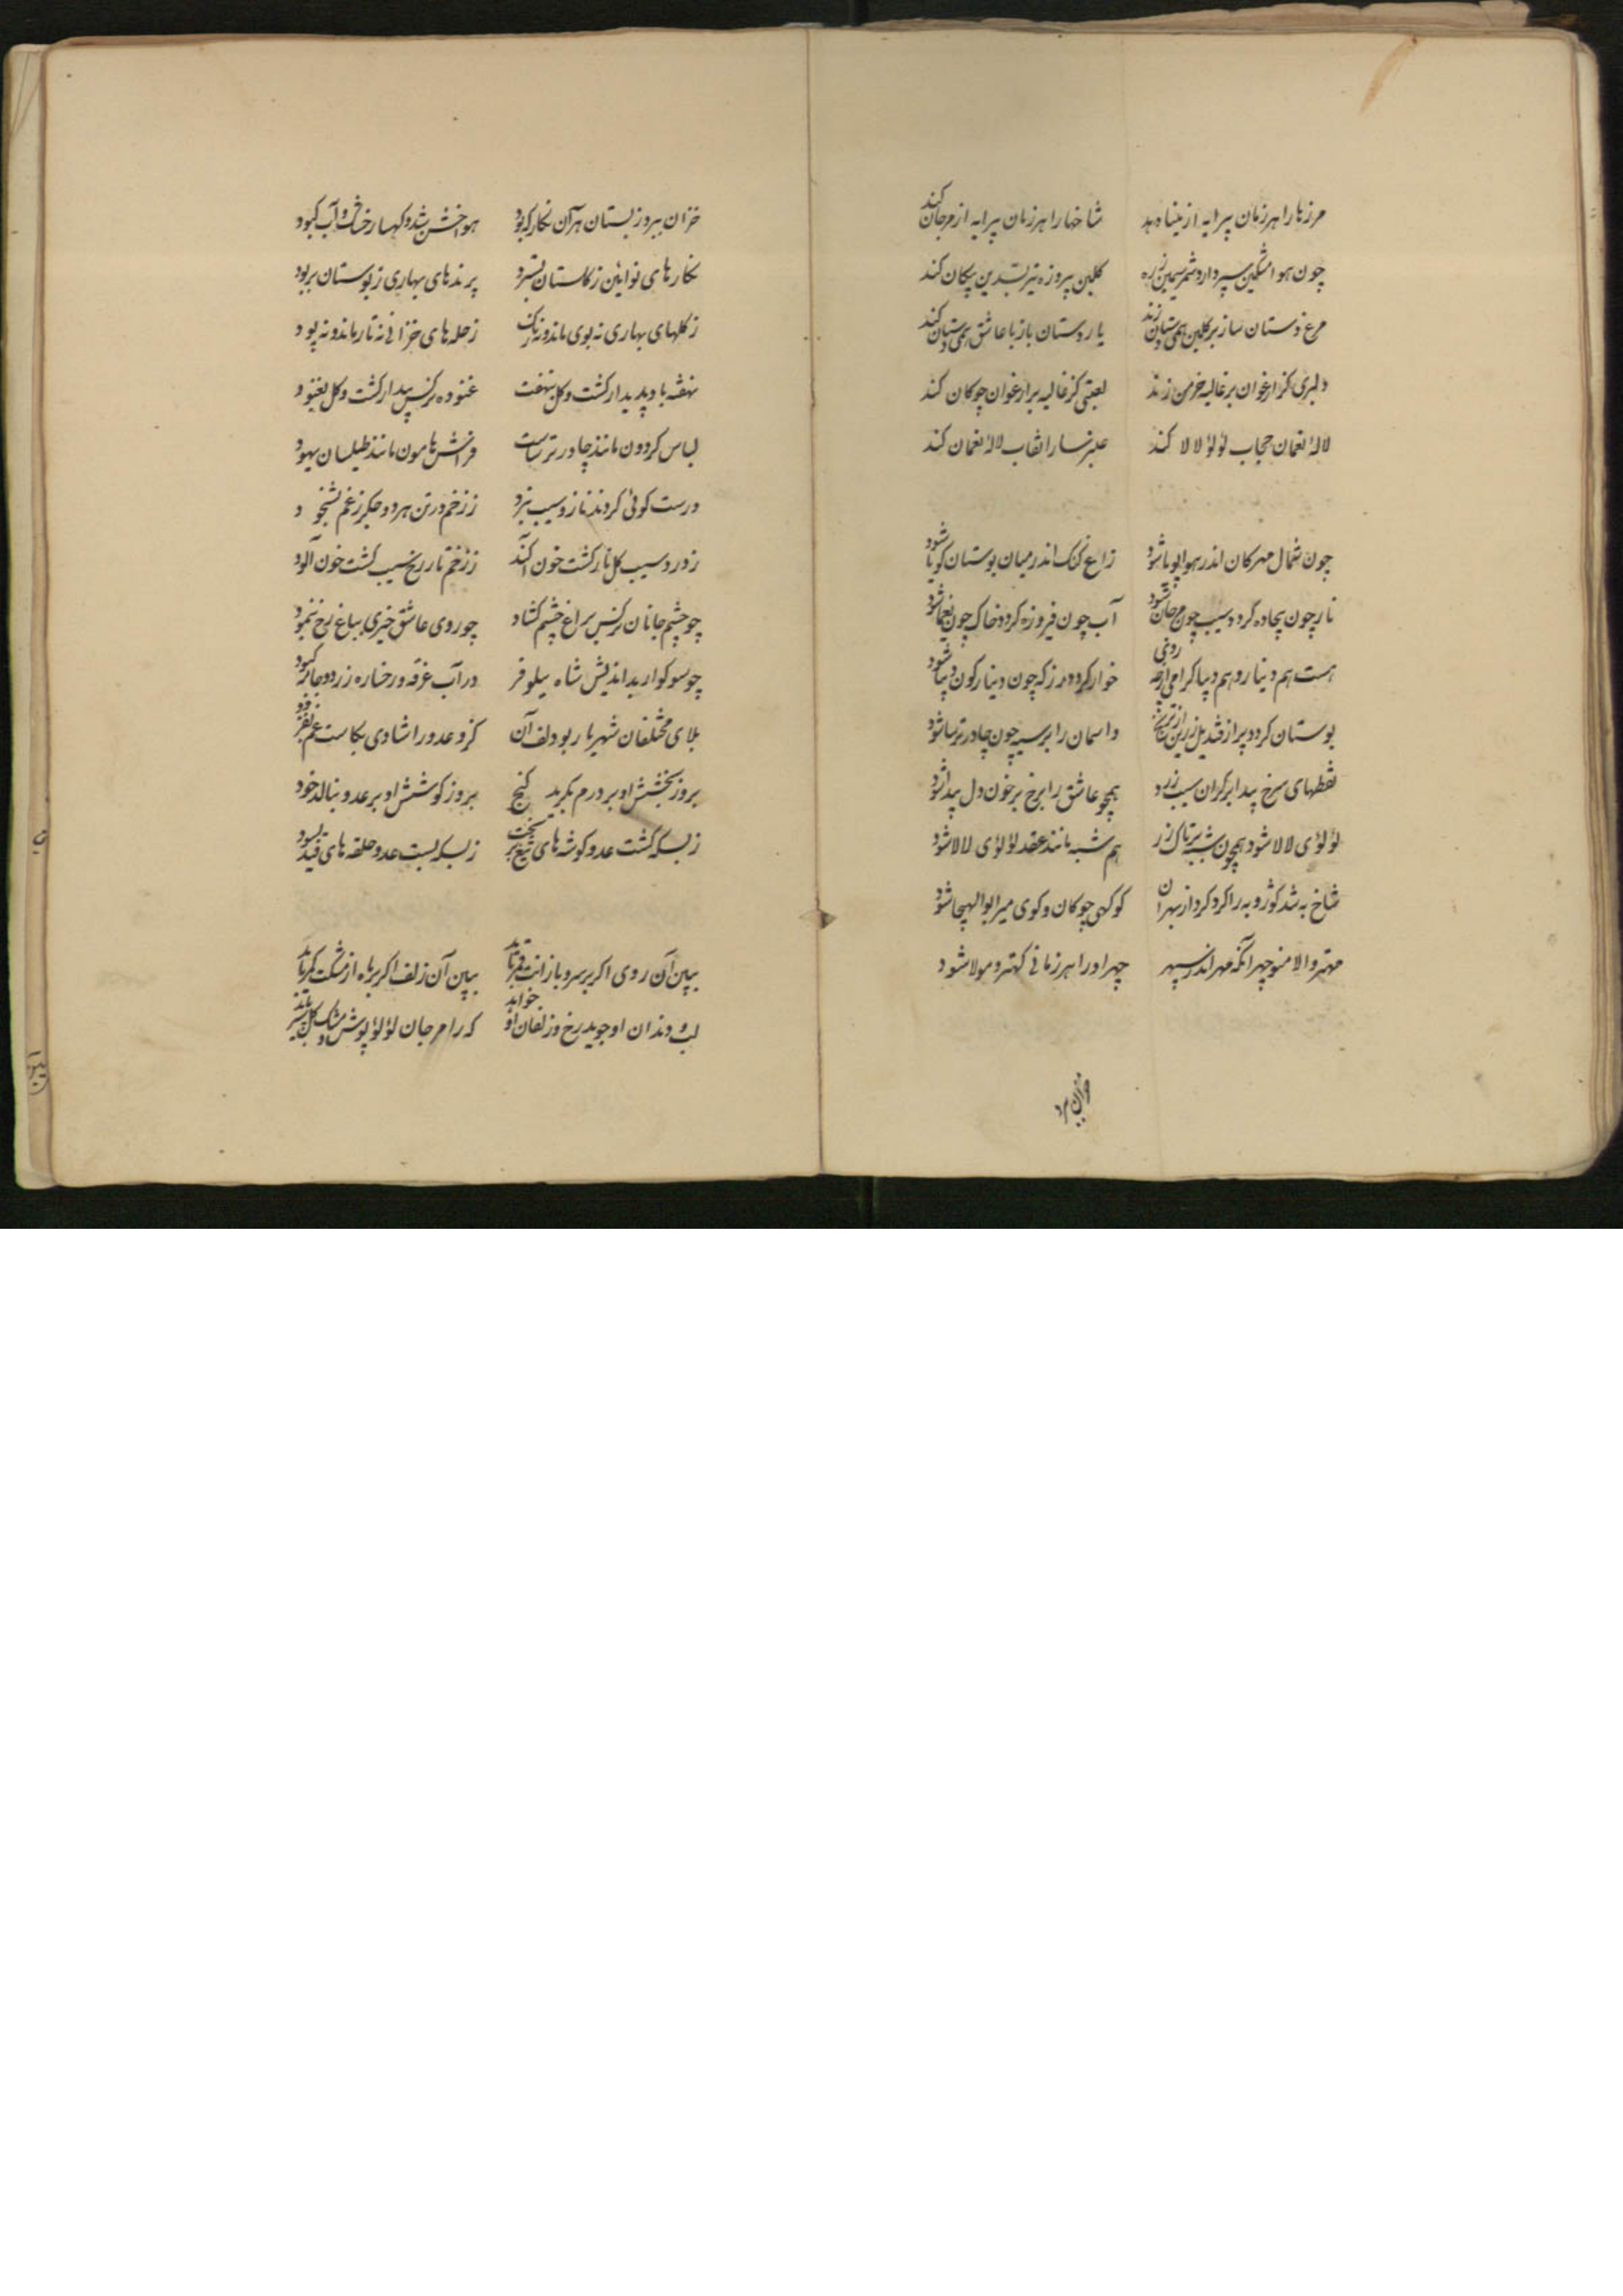 مرزها را هر زمان پیرایه از مینا دهد شاخها را هر زمان پیرایه از مرجان کند
چون هوا مشکین سپر دارد شمر سیمین زره گلبن پیروزه تیر بسدین پیکان کند
مرغ دستان ساز بر گلبن همی دستان زند یار دستان باز با عاشق همی دستان کند
دلبری کز ارغوان بر غالیه خرمن زند لعبتی کز غالیه بر ارغوان چوکان کند
لالهٔ نعمان حجاب لؤلؤ لالا کند عنبر سارا نقاب لالهٔ نعمان کند
چون شمال مهرکان اندر هوا پویا شود زاغ گنگ اندر میان بوستان گویا شود
نار چون بیجاده گردد سیب چون مرجان شود آب چون فیروزه گردد خاک چون
هست هم دینار و هم دیبا گرامی ارچه خوار گردد رز که چون دینارگون دیبا شود
بوستان گردد پر از قندیل زرین از ترنج و اسمان را بر سیه چون چادر ترسا شود
نقطهای سرخ پیدا بر کران سیب زرد همچو عاشق را برخ بر خون دل پیدا شود
لؤلؤی لالا شود همچون شبه بر تاک رز هم شبه مانند عقد لؤلؤی لالا شود
شاخ به شد گوژ و به را گرد کرد از بهر آن کو گهی چوکان و گوی میر ابوالهیجا شود
مهتر والا منوچهر آنکه مهر اندر سپهر چهر او را هر زمانی کهتر و مولا شود
خزان ببرد
خزان ببرد ز بستان هر آن نگار که بود هوا خشن شد و کهسار زشت و آب کبود
نگارهای نوایین ز گلستان بسترد پرندهای بهاری ز بوستان بربود
ز گلهای بهاری نه بوی ماند و نه رنگ ز حله های خزانی نه تار ماند و نه پود
نهفته باد پدیدار گشت و گل بنهفت غنوده نرگس بیدار گشت و گل بغنود
لباس گردون مانند چادر ترساست فراش هامون مانند طیلسان یهود
درست گوئی کردند نار و سیب نبرد ز زخم در تن هر دو جگر ز غم
ز درد سیب گل نار گشت خون آکند ز زخم نار رخ سیب گشت خون آلود
چو چشم جانان نرگس براغ چشم گشاد چو روی عاشق خیری بباغ رخ بنمود
چو سوکوار بداندیش شاه نیلوفر در آب غرقه و رخساره زرد و جامه کبود
بلای مختلفان شهریار بودلف آن کزو عدو را شادی بکاست غم بفزود
بروز بخشش او بر درم بگرید گنج بروز کوشش او بر عدو بنالد خود
ز بسکه کشت عدو گوشه های تیغ ز بسکه بست عدو حلقه های قید بسود
ببین آن روی اگر بر سرو بازانت قمر باید ببین آن زلف اگر بر ماه از مشکت کمر باید
لب و دندان او جوید رخ و زلفان او خواهد که را مرجان لؤلؤ پوش و مشک گل سپر باید